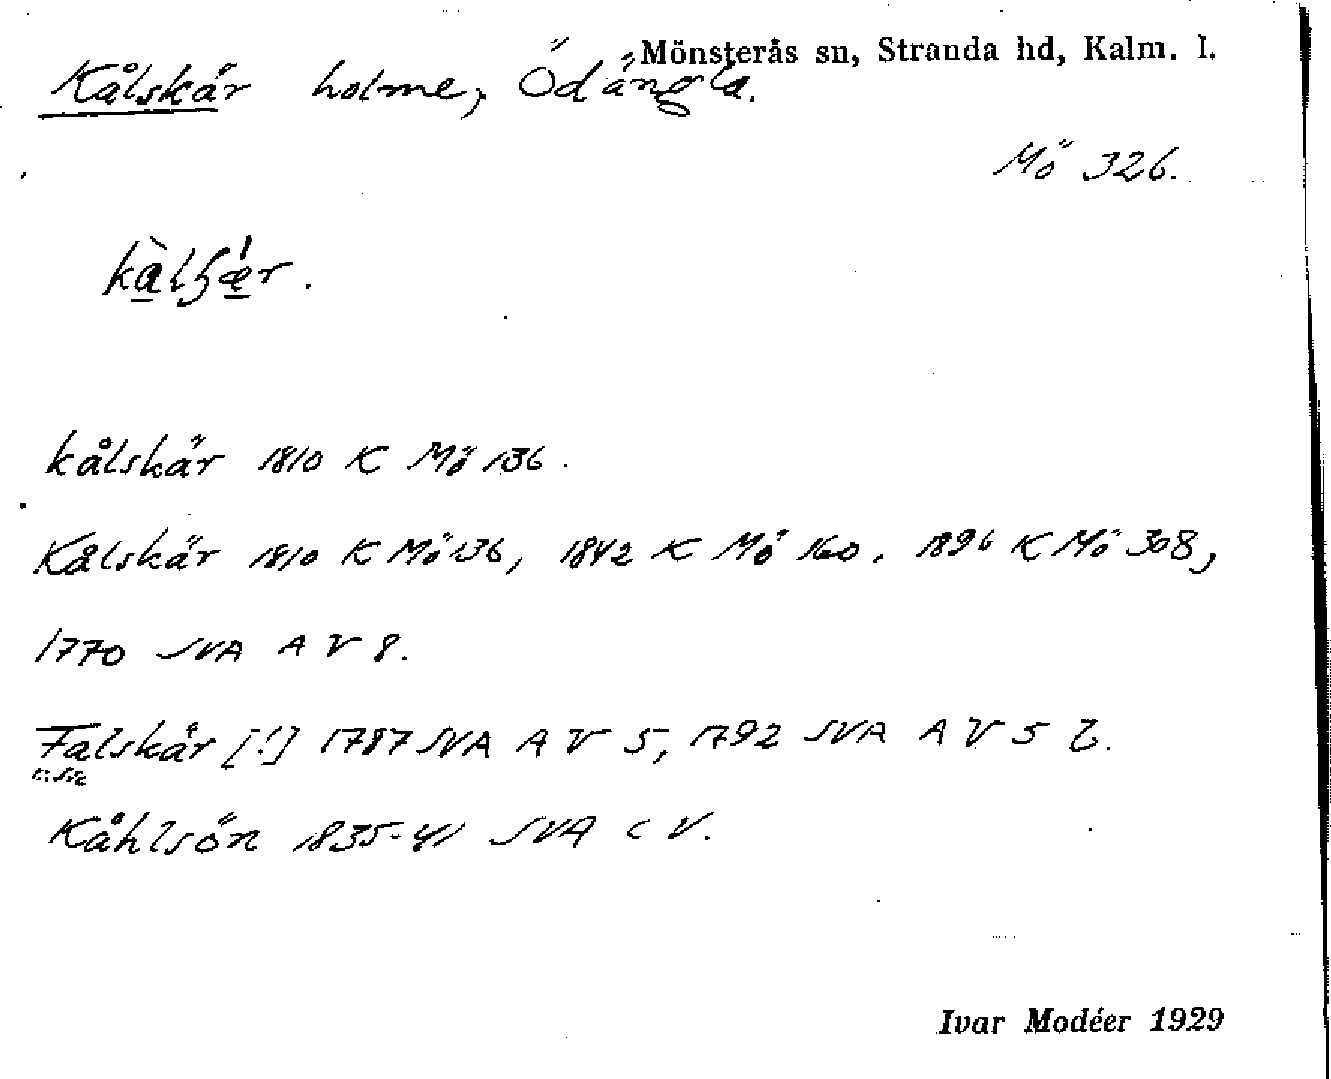 Mönsterås sn, Stranda hd, Kalm. l.
Kålskär holme, Ödängla.
Mö 326.
kålskär 1810 K Mö 136.
Kålskär 1810 K Mö 136, 1842 K Mö 160. 1896 K Mö 308,
1770 SVA A V 8.
Falskär [!] 1787 SVA A V 5, 1792 SVA A V 5
Kåhlsön 1835-41 SVA C V.
Ivar Modéer 1929